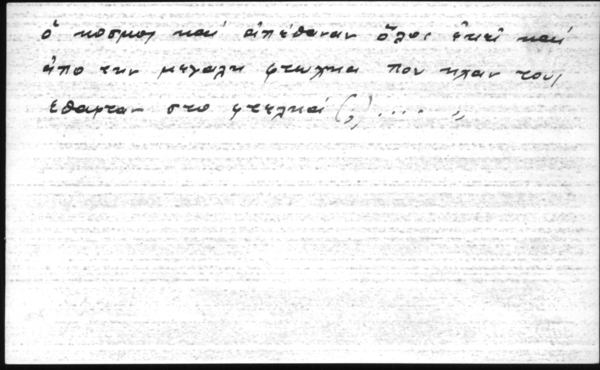 ὁ κοσμος καί ἀπέθαναν ὅλοι ἐκεῖ καί
ἀπο την μεγαλη φτωχεια που ηταν τους
εθαφταν στο φτελκαί (;) .... „